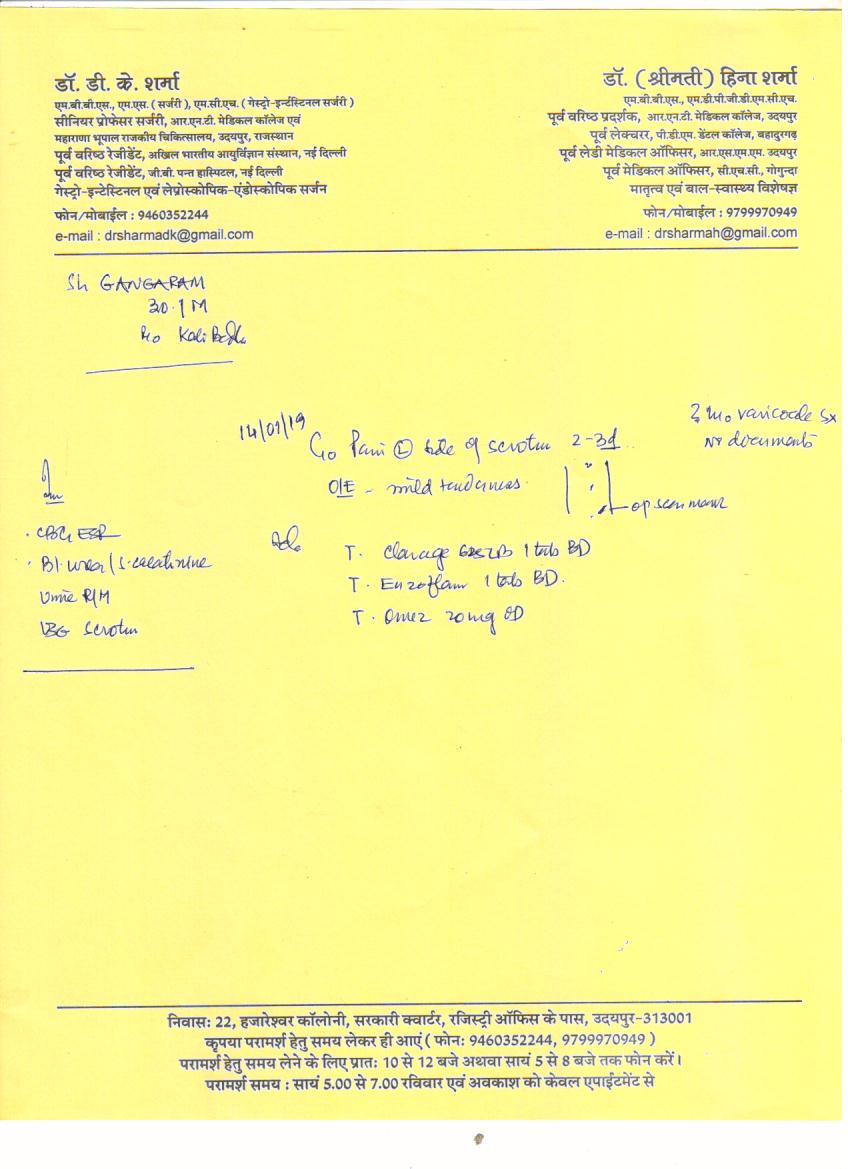 डॉ. डी. के. शर्मा
एम.बी.बी.एस., एम.एस. ( सर्जरी ), एम.सी.एच. ( गेस्ट्रो-इन्टेस्टिनल सर्जरी )
सीनियर प्रोफेसर सर्जरी, आर.एन.टी. मेडिकल कॉलेज एवं
महाराणा भूपाल राजकीय चिकित्सालय, उदयपुर, राजस्थान
पूर्व वरिष्ठ रेजीडेंट, अखिल भारतीय आयुर्विज्ञान संस्थान, नई दिल्ली
पूर्व वरिष्ठ रेजीडेंट, जी.बी. पन्त हास्पिटल, नई दिल्ली
गेस्ट्रो-इन्टेस्टिनल एवं लेप्रोस्कोपिक-एंडोस्कोपिक सर्जन
फोन/मोबाईल : 9460352244
e-mail : drsharmadk@gmail.com
डॉ. (श्रीमती) हिना शर्मा
एम.बी.बी.एस., एम.डी.पी.जी.डी.एम.सी.एच.
पूर्व वरिष्ठ प्रदर्शक, आर.एन.टी. मेडिकल कॉलेज, उदयपुर
पूर्व लेक्चरर, पी.डी.एम. डेंटल कॉलेज, बहादुरगढ़
पूर्व लेडी मेडिकल ऑफिसर, आर.एस.एम.एम. उदयपुर
पूर्व मेडिकल ऑफिसर, सी.एच.सी., गोगुन्दा
मातृत्व एवं बाल-स्वास्थ्य विशेषज्ञ
फोन/मोबाईल : 9799970949
e-mail : drsharmah@gmail.com
Sh GANGARAM
30 / M
R/o Kali
14/01/19
C/o Pain (L) side of scrotum 2-3d
H/o varicocele Sx
No documents
O/E - mild tenderness.
op scar mark
Adv
T. Clavage 625 1 tab BD
T. Enzoflam 1 tab BD.
T. Omez 20mg OD
CBC, ESR
Bl. urea / S. creatinine
Urine R/M
USG Scrotum
निवासः 22, हजारेश्वर कॉलोनी, सरकारी क्वार्टर, रजिस्ट्री ऑफिस के पास, उदयपुर-313001
कृपया परामर्श हेतु समय लेकर ही आएं ( फोनः 9460352244, 9799970949 )
परामर्श हेतु समय लेने के लिए प्रातः 10 से 12 बजे अथवा सायं 5 से 8 बजे तक फोन करें।
परामर्श समय : सायं 5.00 से 7.00 रविवार एवं अवकाश को केवल एपाईटमेंट से